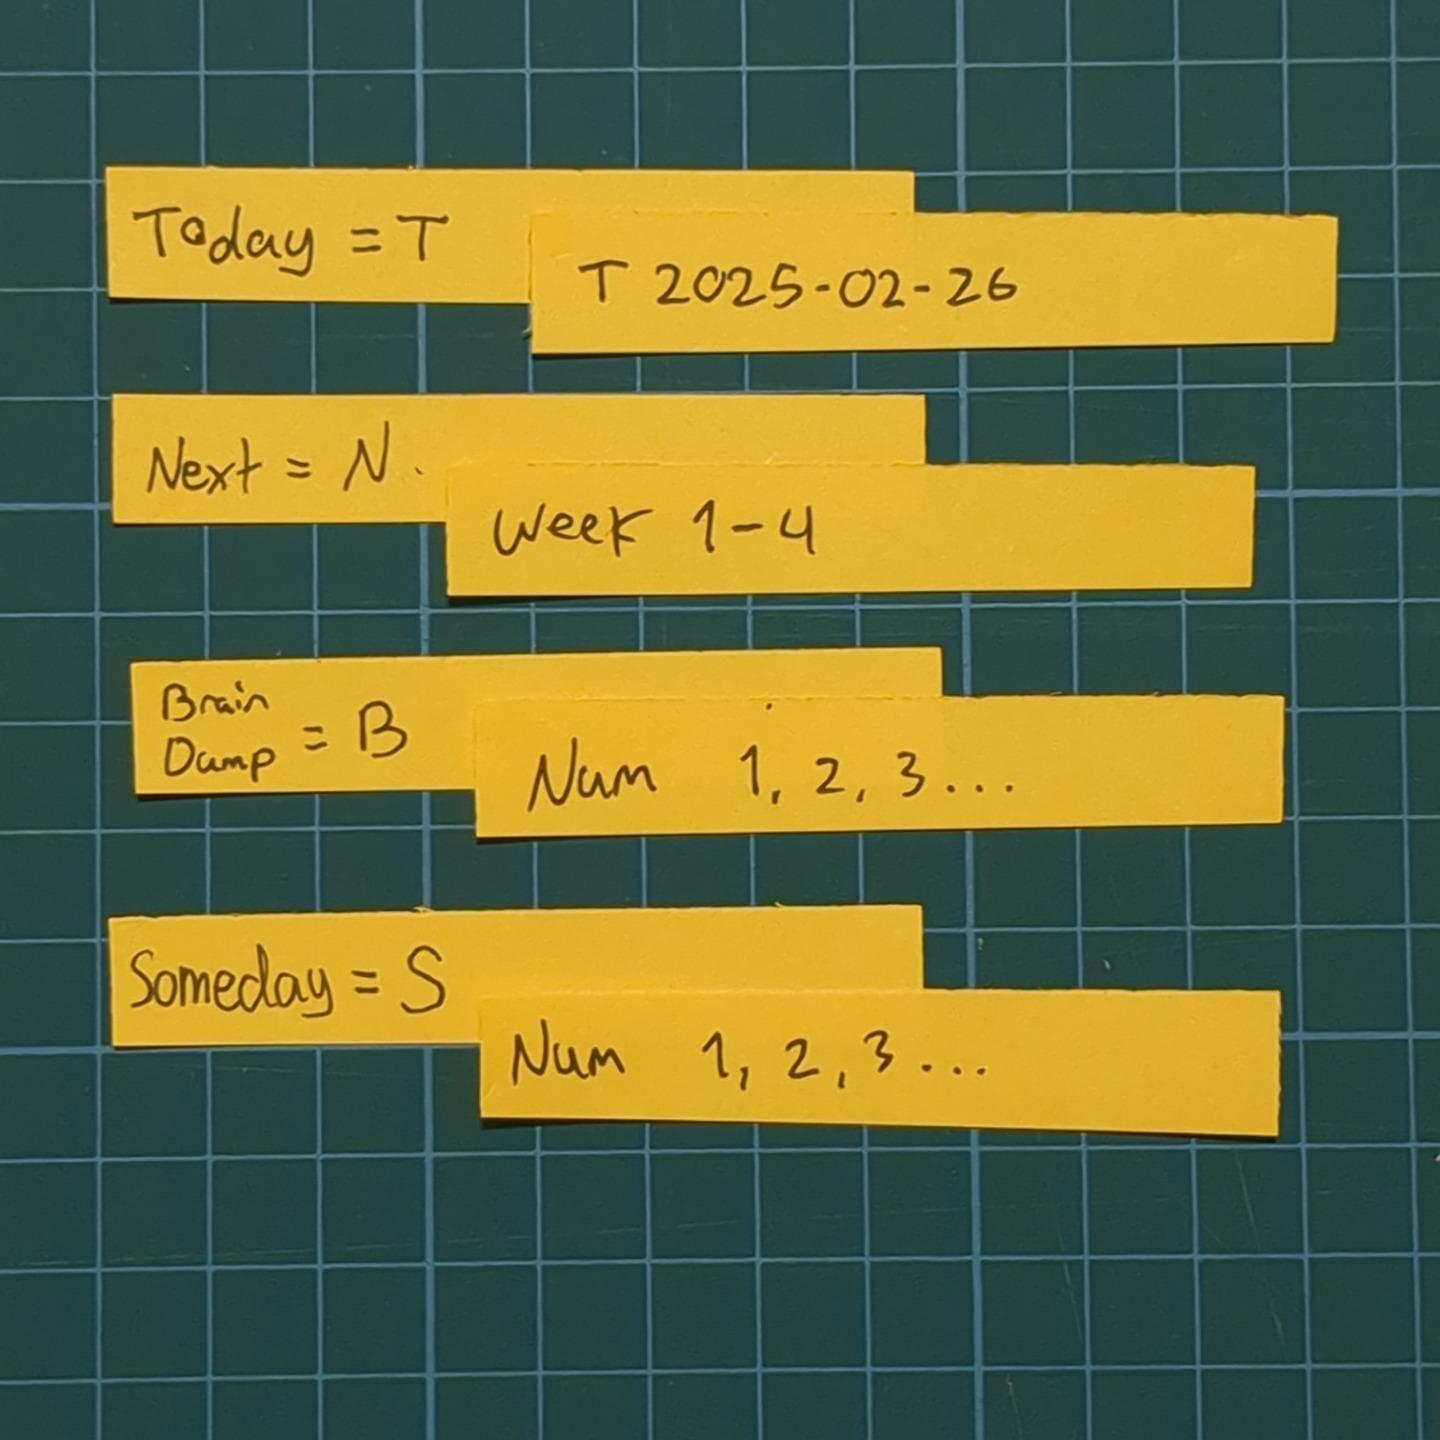 Today = T
T 2025-02-26
Next = N.
Week 1-4
Brain
Dump = B
Num 1, 2, 3...
Someday = S
Num 1, 2, 3...